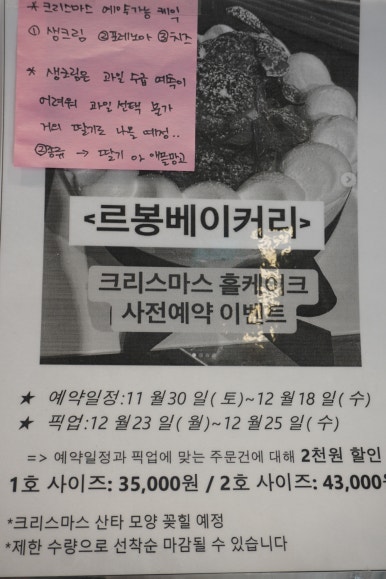 * 크리스마스 예약가능 케익
① 생크림 ②포레누아 ③치즈
* 생크림은 과일 수급 예측이
어려워 과일선택 불가
거의 딸기로 나올 예정..
②종류 → 딸기 or 애플망고
<르봉베이커리>
크리스마스 홀케이크
사전예약 이벤트
★ 예약일정:11월 30일(토)~12월 18일(수)
★ 픽업:12월 23일(월)~12월 25일(수)
=> 예약일정과 픽업에 맞는 주문건에 대해 2천원 할인
1호 사이즈: 35,000원 / 2호 사이즈: 43,000
*크리스마스 산타 모양 꽂힐 예정
*제한 수량으로 선착순 마감될 수 있습니다